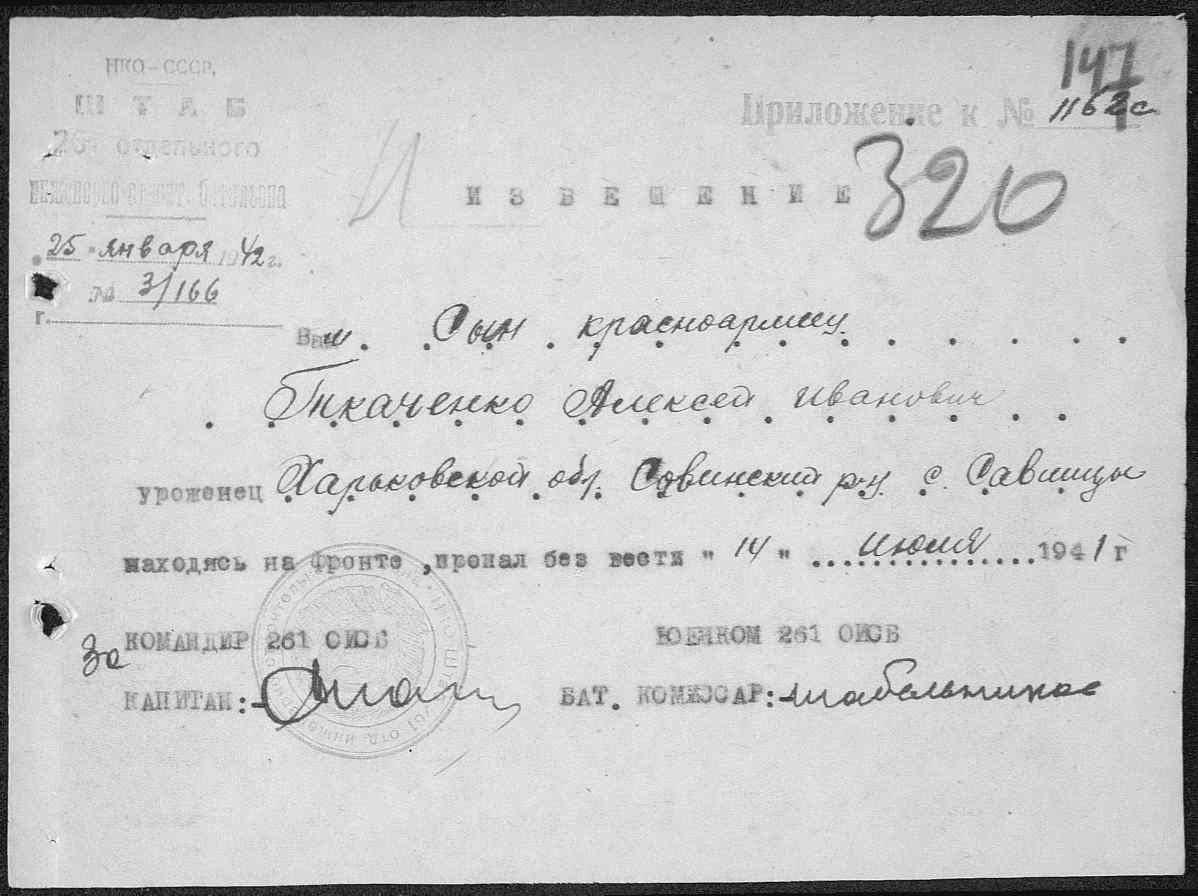 147
НКО-СССР,
ШТАБ
Приложение к № 1162с
261 отдельного
И ИЗВЕЩЕНИЕ 320
инженерно-строит. батальона
"25" января 1942 г.
№ 3/166
г.
Ваш. Сын красноармеец
Ткаченко Алексей Иванович
уроженец Харьковской обл. Савинский р-н с. Савинцы
находясь на фронте, пропал без вести "14" июля 1941 г
За КОМАНДИР 261 ОИСБ ВОЕНКОМ 261 ОИСБ
КАПИТАН: БАТ. КОМИССАР: Табельников